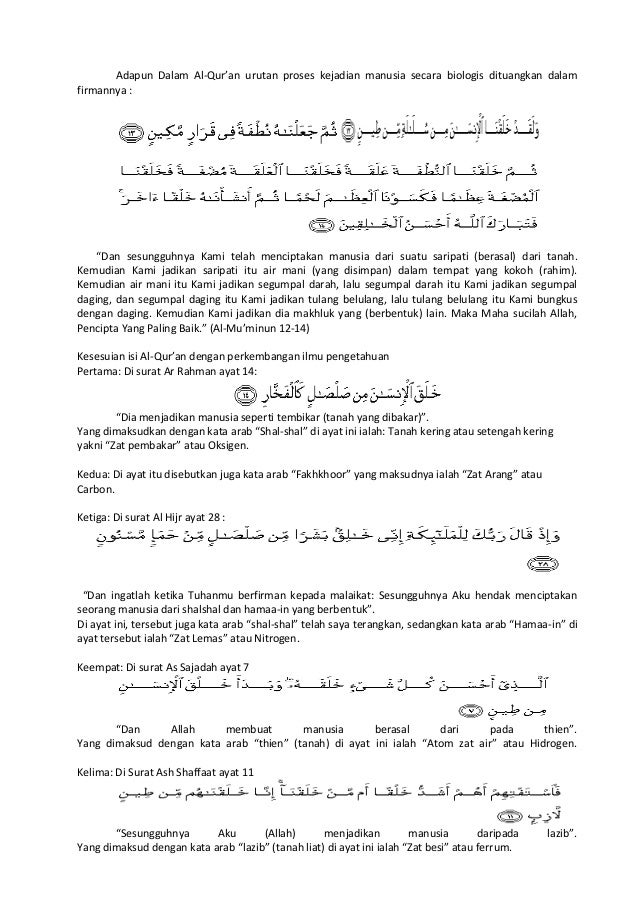 Adapun Dalam Al-Qur’an urutan proses kejadian manusia secara biologis dituangkan dalam
firmannya :
وَلَقَدْ خَلَقْنَا ٱلْإِنسَـٰنَ مِن سُلَـٰلَةٍ مِّن طِينٍ ﴿١٢﴾ ثُمَّ جَعَلْنَـٰهُ نُطْفَةً فِى قَرَارٍ مَّكِينٍ ﴿١٣﴾
ثُمَّ خَلَقْنَا ٱلنُّطْفَةَ عَلَقَةً فَخَلَقْنَا ٱلْعَلَقَةَ مُضْغَةً فَخَلَقْنَا
ٱلْمُضْغَةَ عِظَـٰمًا فَكَسَوْنَا ٱلْعِظَـٰمَ لَحْمًا ثُمَّ أَنشَأْنَـٰهُ خَلْقًا ءَاخَرَ ۚ
فَتَبَارَكَ ٱللَّهُ أَحْسَنُ ٱلْخَـٰلِقِينَ ﴿١٤﴾
“Dan sesungguhnya Kami telah menciptakan manusia dari suatu saripati (berasal) dari tanah.
Kemudian Kami jadikan saripati itu air mani (yang disimpan) dalam tempat yang kokoh (rahim).
Kemudian air mani itu Kami jadikan segumpal darah, lalu segumpal darah itu Kami jadikan segumpal
daging, dan segumpal daging itu Kami jadikan tulang belulang, lalu tulang belulang itu Kami bungkus
dengan daging. Kemudian Kami jadikan dia makhluk yang (berbentuk) lain. Maka Maha sucilah Allah,
Pencipta Yang Paling Baik.” (Al-Mu’minun 12-14)
Kesesuian isi Al-Qur’an dengan perkembangan ilmu pengetahuan
Pertama: Di surat Ar Rahman ayat 14:
خَلَقَ ٱلْإِنسَـٰنَ مِن صَلْصَـٰلٍ كَٱلْفَخَّارِ ﴿١٤﴾
“Dia menjadikan manusia seperti tembikar (tanah yang dibakar)”.
Yang dimaksudkan dengan kata arab “Shal-shal” di ayat ini ialah: Tanah kering atau setengah kering
yakni “Zat pembakar” atau Oksigen.
Kedua: Di ayat itu disebutkan juga kata arab “Fakhkhoor” yang maksudnya ialah “Zat Arang” atau
Carbon.
Ketiga: Di surat Al Hijr ayat 28 :
وَإِذْ قَالَ رَبُّكَ لِلْمَلَـٰٓئِكَةِ إِنِّى خَـٰلِقٌۢ بَشَرًا مِّن صَلْصَـٰلٍ مِّنْ حَمَإٍ مَّسْنُونٍ
﴿٢٨﴾
“Dan ingatlah ketika Tuhanmu berfirman kepada malaikat: Sesungguhnya Aku hendak menciptakan
seorang manusia dari shalshal dan hamaa-in yang berbentuk”.
Di ayat ini, tersebut juga kata arab “shal-shal” telah saya terangkan, sedangkan kata arab “Hamaa-in” di
ayat tersebut ialah “Zat Lemas” atau Nitrogen.
Keempat: Di surat As Sajadah ayat 7
ٱلَّذِىٓ أَحْسَنَ كُلَّ شَىْءٍ خَلَقَهُۥ ۖ وَبَدَأَ خَلْقَ ٱلْإِنسَـٰنِ
مِن طِينٍ ﴿٧﴾
“Dan Allah membuat manusia berasal dari pada thien”.
Yang dimaksud dengan kata arab “thien” (tanah) di ayat ini ialah “Atom zat air” atau Hidrogen.
Kelima: Di Surat Ash Shaffaat ayat 11
فَٱسْتَفْتِهِمْ أَهُمْ أَشَدُّ خَلْقًا أَم مَّنْ خَلَقْنَآ ۚ إِنَّا خَلَقْنَـٰهُم مِّن طِينٍ
لَّازِبٍۭ ﴿١١﴾
“Sesungguhnya Aku (Allah) menjadikan manusia daripada lazib”.
Yang dimaksud dengan kata arab “lazib” (tanah liat) di ayat ini ialah “Zat besi” atau ferrum.